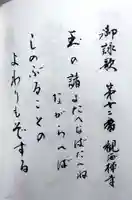 御詠歌 第廿二番 観海禅寺
玉の緒よたへなばたへね
ながらへば
しのぶることの
よわりもぞする